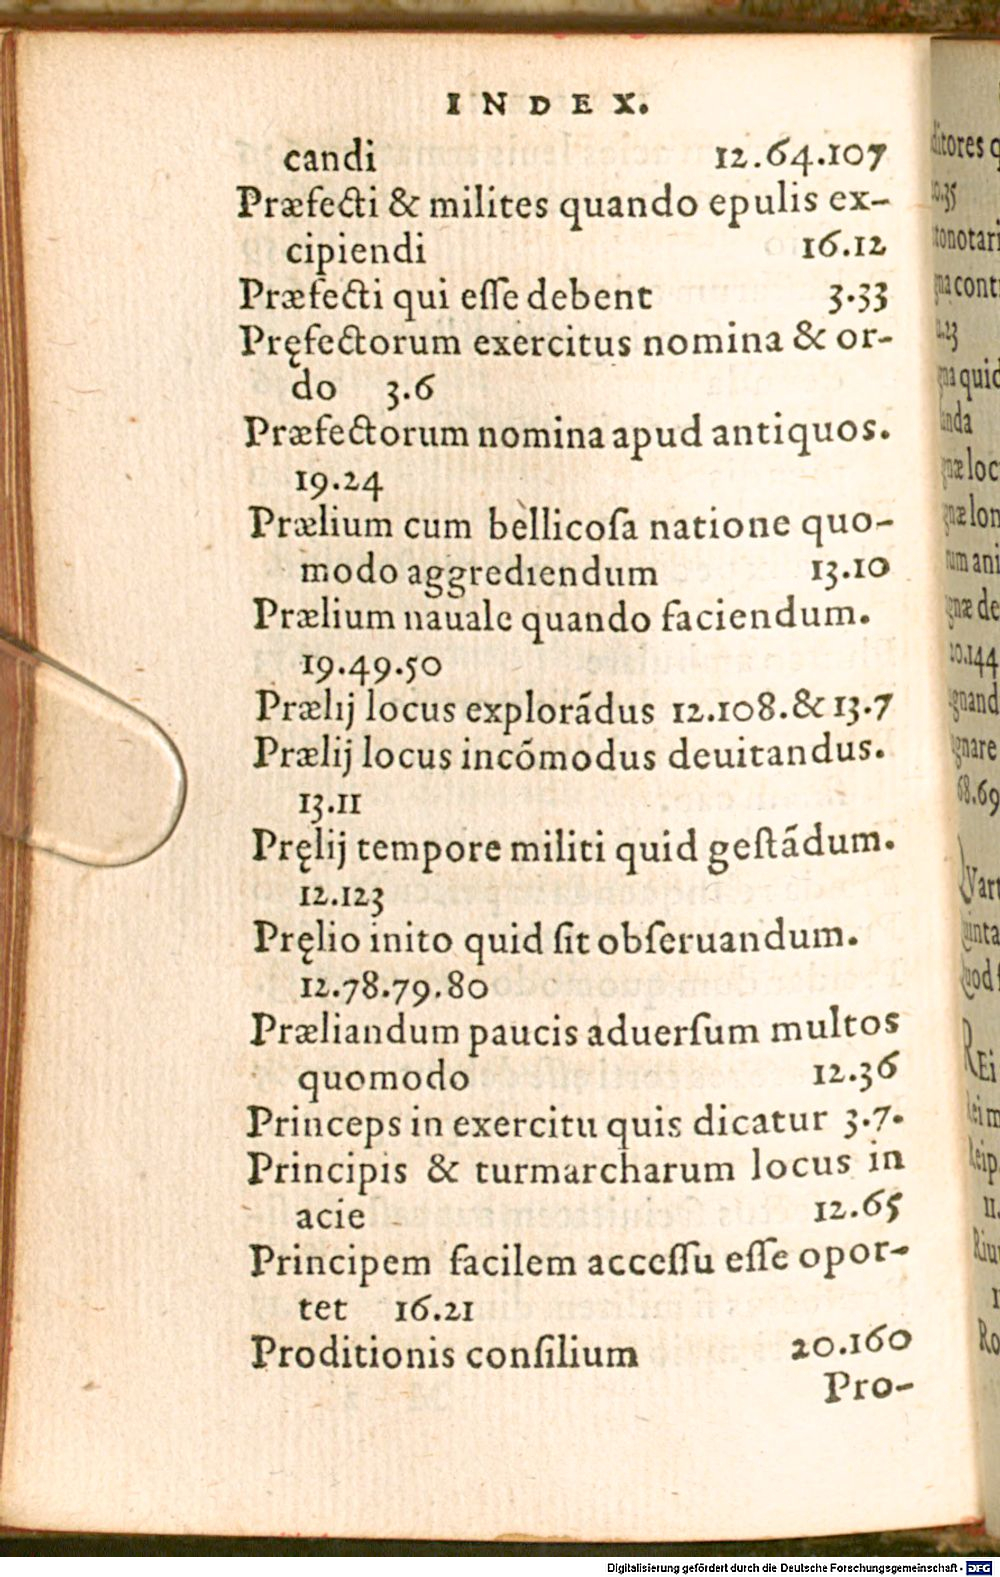 INDEX.
candi 12.64.107
Præfecti & milites quando epulis ex-
cipiendi 16.12
Præfecti qui eſſe debent 3.33
Pręfectorum exercitus nomina & or-
do 3.6
Præfectorum nomina apud antiquos.
19.24
Prælium cum bellicoſa natione quo-
modo aggrediendum 13.10
Prælium nauale quando faciendum.
19.49.50
Prælij locus explorãdus 12.108.& 13.7
Prælij locus incõmodus deuitandus.
13.11
Pręlij tempore militi quid geſtãdum.
12.123
Pręlio inito quid ſit obſeruandum.
12.78.79.80
Præliandum paucis aduerſum multos
quomodo 12.36
Princeps in exercitu quis dicatur 3.7.
Principis & turmarcharum locus in
acie 12.65
Principem facilem acceſſu eſſe opor-
tet 16.21
Proditionis conſilium 20.160
Pro-
ditores q
0.35
tonotari
na cont
2.23
na quid
anda
næ loc
næ lon
rum ani
gnæ de
20.144
gnand
gnare
68.69
Vart
uinta
uod ſ
REi
Rei m
Reip
11.
Riu
1
Ro
Digitalisierung gefördert durch die Deutsche Forschungsgemeinschaft - DFG